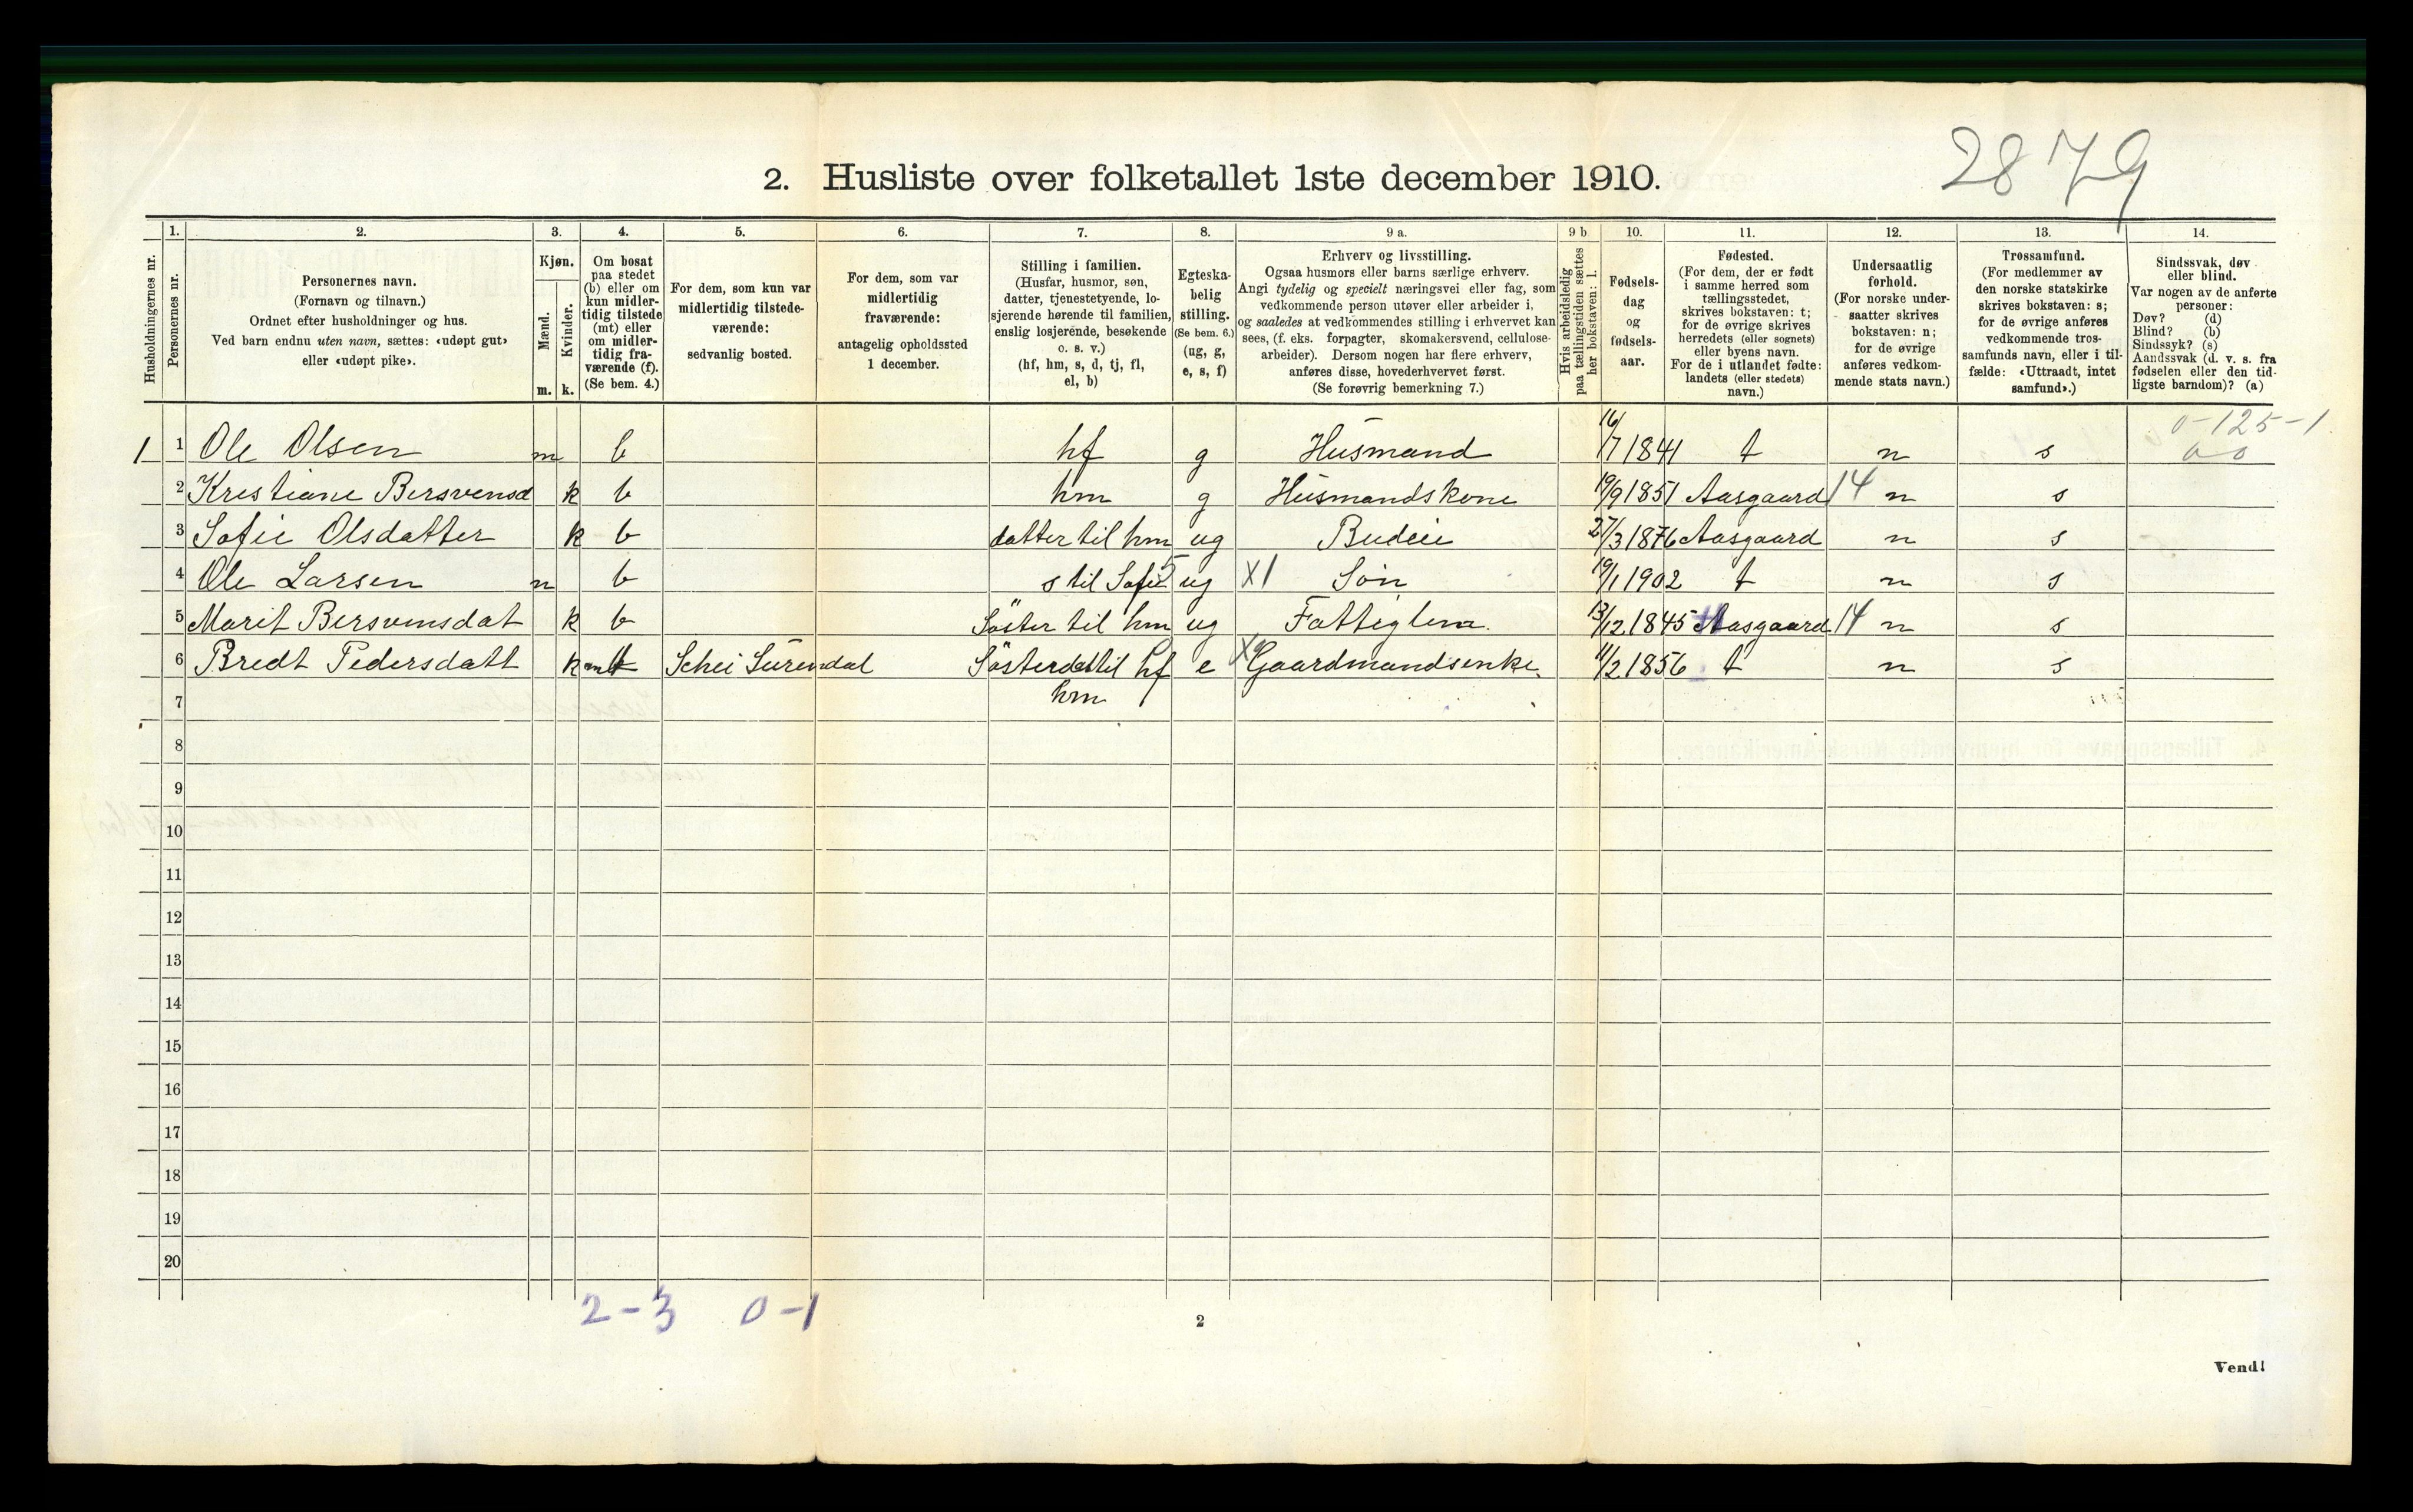 2879
2. Husliste over folketallet 1ste december 1910.
Husholdningernes nr.
1.
Personernes nr.
2.
Personernes navn.
(Fornavn og tilnavn.)
Ordnet efter husholdninger og hus.
Ved barn endnu uten navn, sættes: «udøpt gut»
eller «udøpt pike».
3.
Kjøn.
Mænd.
Kvinder.
m. k.
4.
Om bosat
paa stedet
(b) eller om
kun midler-
tidig tilstede
(mt) eller
om midler-
tidig fra-
værende (f).
(Se bem. 4.)
5.
For dem, som kun var
midlertidig tilstede-
værende:
sedvanlig bosted.
6.
For dem, som var
midlertidig
fraværende:
antagelig opholdssted
1 december.
7.
Stilling i familien.
(Husfar, husmor, søn,
datter, tjenestetyende, lo-
sjerende hørende til familien,
enslig losjerende, besøkende
o. s. v.)
(hf, hm, s, d, tj, fl,
el, b)
8.
Egteska-
belig
stilling.
(Se bem. 6.)
(ug, g,
e, s, f)
9 a.
Erhverv og livsstilling.
Ogsaa husmors eller barns særlige erhverv.
Angi tydelig og specielt næringsvei eller fag, som
vedkommende person utøver eller arbeider i,
og saaledes at vedkommendes stilling i erhvervet kan
sees, (f. eks. forpagter, skomakersvend, cellulose-
arbeider). Dersom nogen har flere erhverv,
anføres disse, hovederhvervet først.
(Se forøvrig bemerkning 7.)
9 b
Hvis arbeidsledig
paa tællingstiden sættes
her bokstaven: l.
10.
Fødsels-
dag
og
fødsels-
aar.
11.
Fødested.
(For dem, der er født
i samme herred som
tællingsstedet,
skrives bokstaven: t;
for de øvrige skrives
herredets (eller sognets)
eller byens navn.
For de i utlandet fødte:
landets (eller stedets)
navn.)
12.
Undersaatlig
forhold.
(For norske under-
saatter skrives
bokstaven: n;
for de øvrige
anføres vedkom-
mende stats navn.)
13.
Trossamfund.
(For medlemmer av
den norske statskirke
skrives bokstaven: s;
for de øvrige anføres
vedkommende tros-
samfunds navn, eller i til-
fælde: «Uttraadt, intet
samfund».)
14.
Sindssvak, døv
eller blind.
Var nogen av de anførte
personer:
Døv? (d)
Blind? (b)
Sindssyk? (s)
Aandssvak (d. v. s. fra
fødselen eller den tid-
ligste barndom)? (a)
0-125-1
1 1 Ole Olsen m b hf g Husmand 16/7 1841 t n s
2 Kristiane Bersvensd k b hm g Husmandskone 19/9 1851 Aasgaard 14 n s
3 Sofie Olsdatter k b datter til hm ug Budeie 27/3 1876 Aasgaard n s
4 Ole Larsen m b s til Sofie ug X1 Søn 19/1 1902 t n s
5 Marit Bersvensdat k b Söster til hm ug Fattiglem 13/12 1845 Aasgaard 14 n s
6 Bredt Pedersdatt k mt Schei Surendal Sösterdat til hf e Gaardmandsenke. 11/2 1856 t n s
7 hm
8
9
10
11
12
13
14
15
16
17
18
19
20
2-3 0-1
2
Vend!